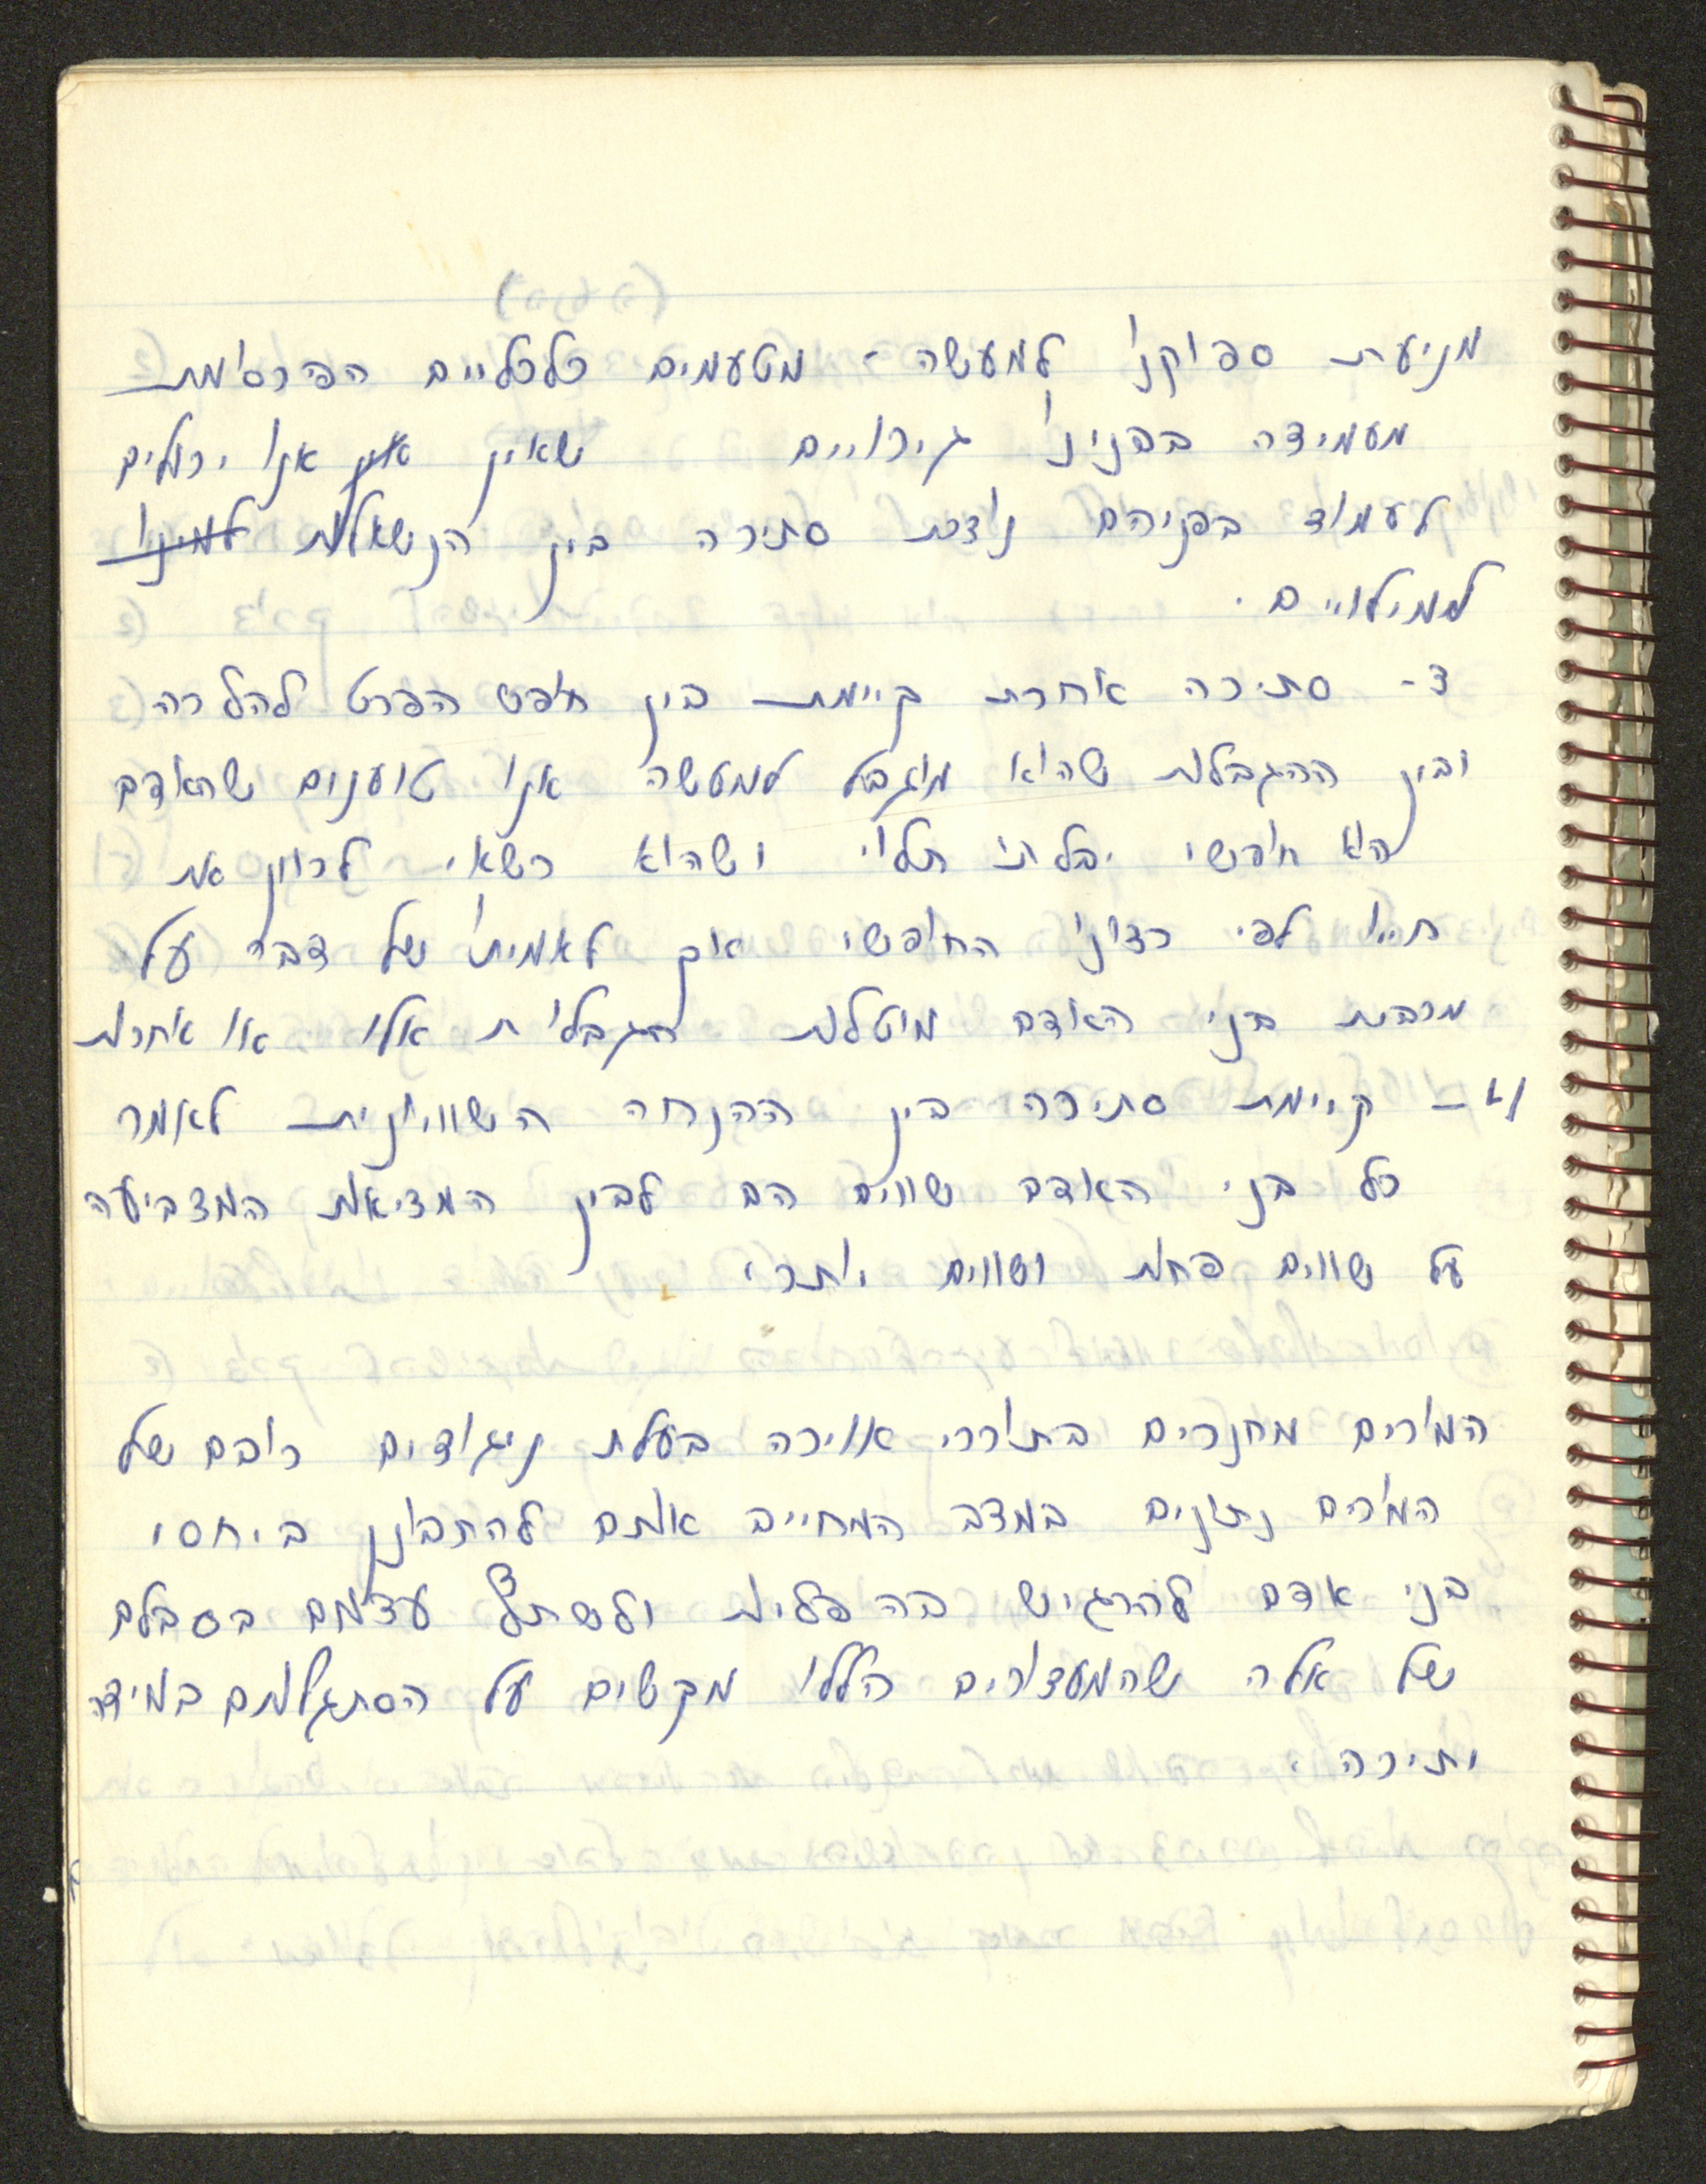 מניעת ספוקנו למעשה - מטעמים כלכליים הפרסומת
מעמידה בפנינו גירויים שאין אנו יכולים
לעמוד בפניהם נוצרת סתירה בין הנשאלות למינוי
למילויים.
ד- סתירה אחרת קיימת בין חופש הפרט להלכה
ובין ההגבלות שהוא מוגבל למעשה אנו טוענים שהאדם
הוא חופשי יבלתי תלוי ושהוא רשאי לכוון את
חייו לפי רצונו החופשי אך לאמיתו של דבר על
מרבית בני האדם מוטלות הגבלות אלו או אחרות
קיימת סתירה בין ההנחה השוויונית לאמר
כל בני האדם שווים הם לבין המציאות המצביעה
על שווים פחות ושווים יותר.
המורים מחנכים בתוככי אווירה בעלת ניגודים רובם של
המורים נתונים במצב המחייב אותם להתבונן ביחסי
בני אדם להרגיש בהפליות ולשתף עצמם בסבלם
של אלה שהמעצורים הללו מקשים על הסתגלותם במידה
יתירה.